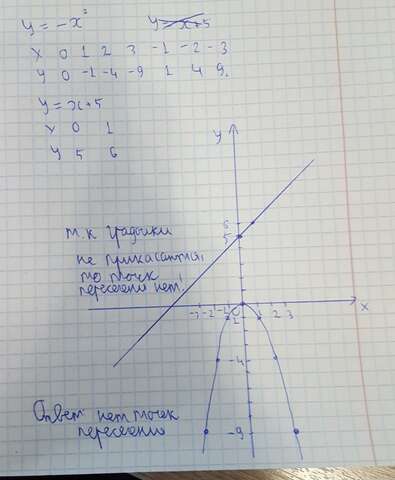 y = -x² y = x+5
x 0 1 2 3 -1 -2 -3
y 0 -1 -4 -9 1 4 9.
y = x+5
x 0 1
y 5 6
y
6
5
т.к графики
не прикасаются,
то точек
пересечения нет!
-3 -2 -1 0 1 2 3 x
-4
-9
Ответ нет точек
пересечения